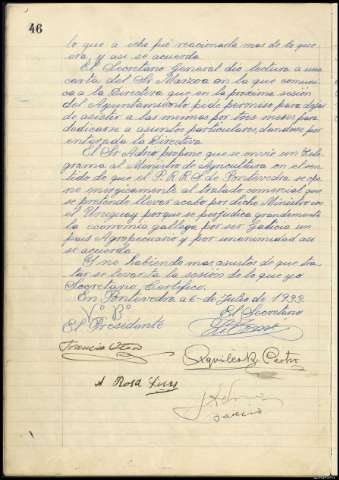 46
lo que a esta pié reacionada mas de lo que
era y asi se acuerda.
El Secretario General dio lectura a una
carta del Sr Marcoa en la que comuni-
ca a la Directiva que en la próxima sesión
del Ayuntamiento pide permiso para dejar
de asistir a las mismas por tres meses para
dedicarse a asuntos particulares, dandose por
enterada la Directiva
El Sr Adrio propone que se envie un tele-
grama al Ministro de Agricultura en el sen-
tido de que el P.R.R.S. de Pontevedra se opo-
ne energicamente al tratado comercial que
se pretende llevar acabo por dicho Ministerio con
el Uruguay porque se perjudica grandemente
la economia gallega por ser Galicia un
pais Agropecuario y por unanimidad asi
se acuerda
Y no habiendo mas asuntos de que tra-
tar se levanta la sesión de lo que yo
Secretario, Certifico.
En Pontevedra a 6 de Julio de 1933.
Vº Bº El Secretario
El Presidente